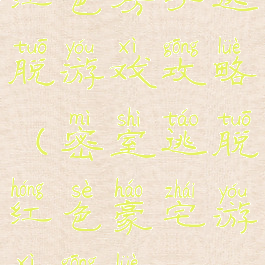 tuō yóu xì gōng lüè
脱游戏攻略
mì shì táo tuō
（密室逃脱
hóng sè háo zhái yóu
红色豪宅游
xì gōng lüè